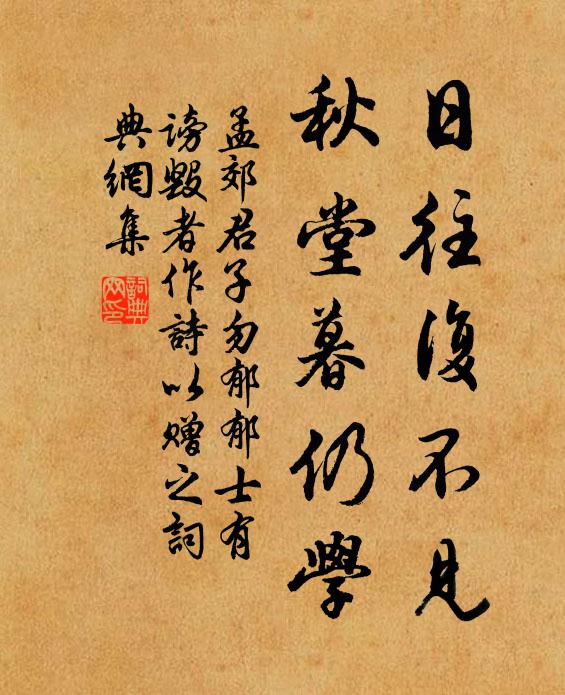 日往復不見
秋堂暮仍學
孟郊君子勿郁郁士有
謗毀者作詩以贈之詞
典網集
詞典
网印